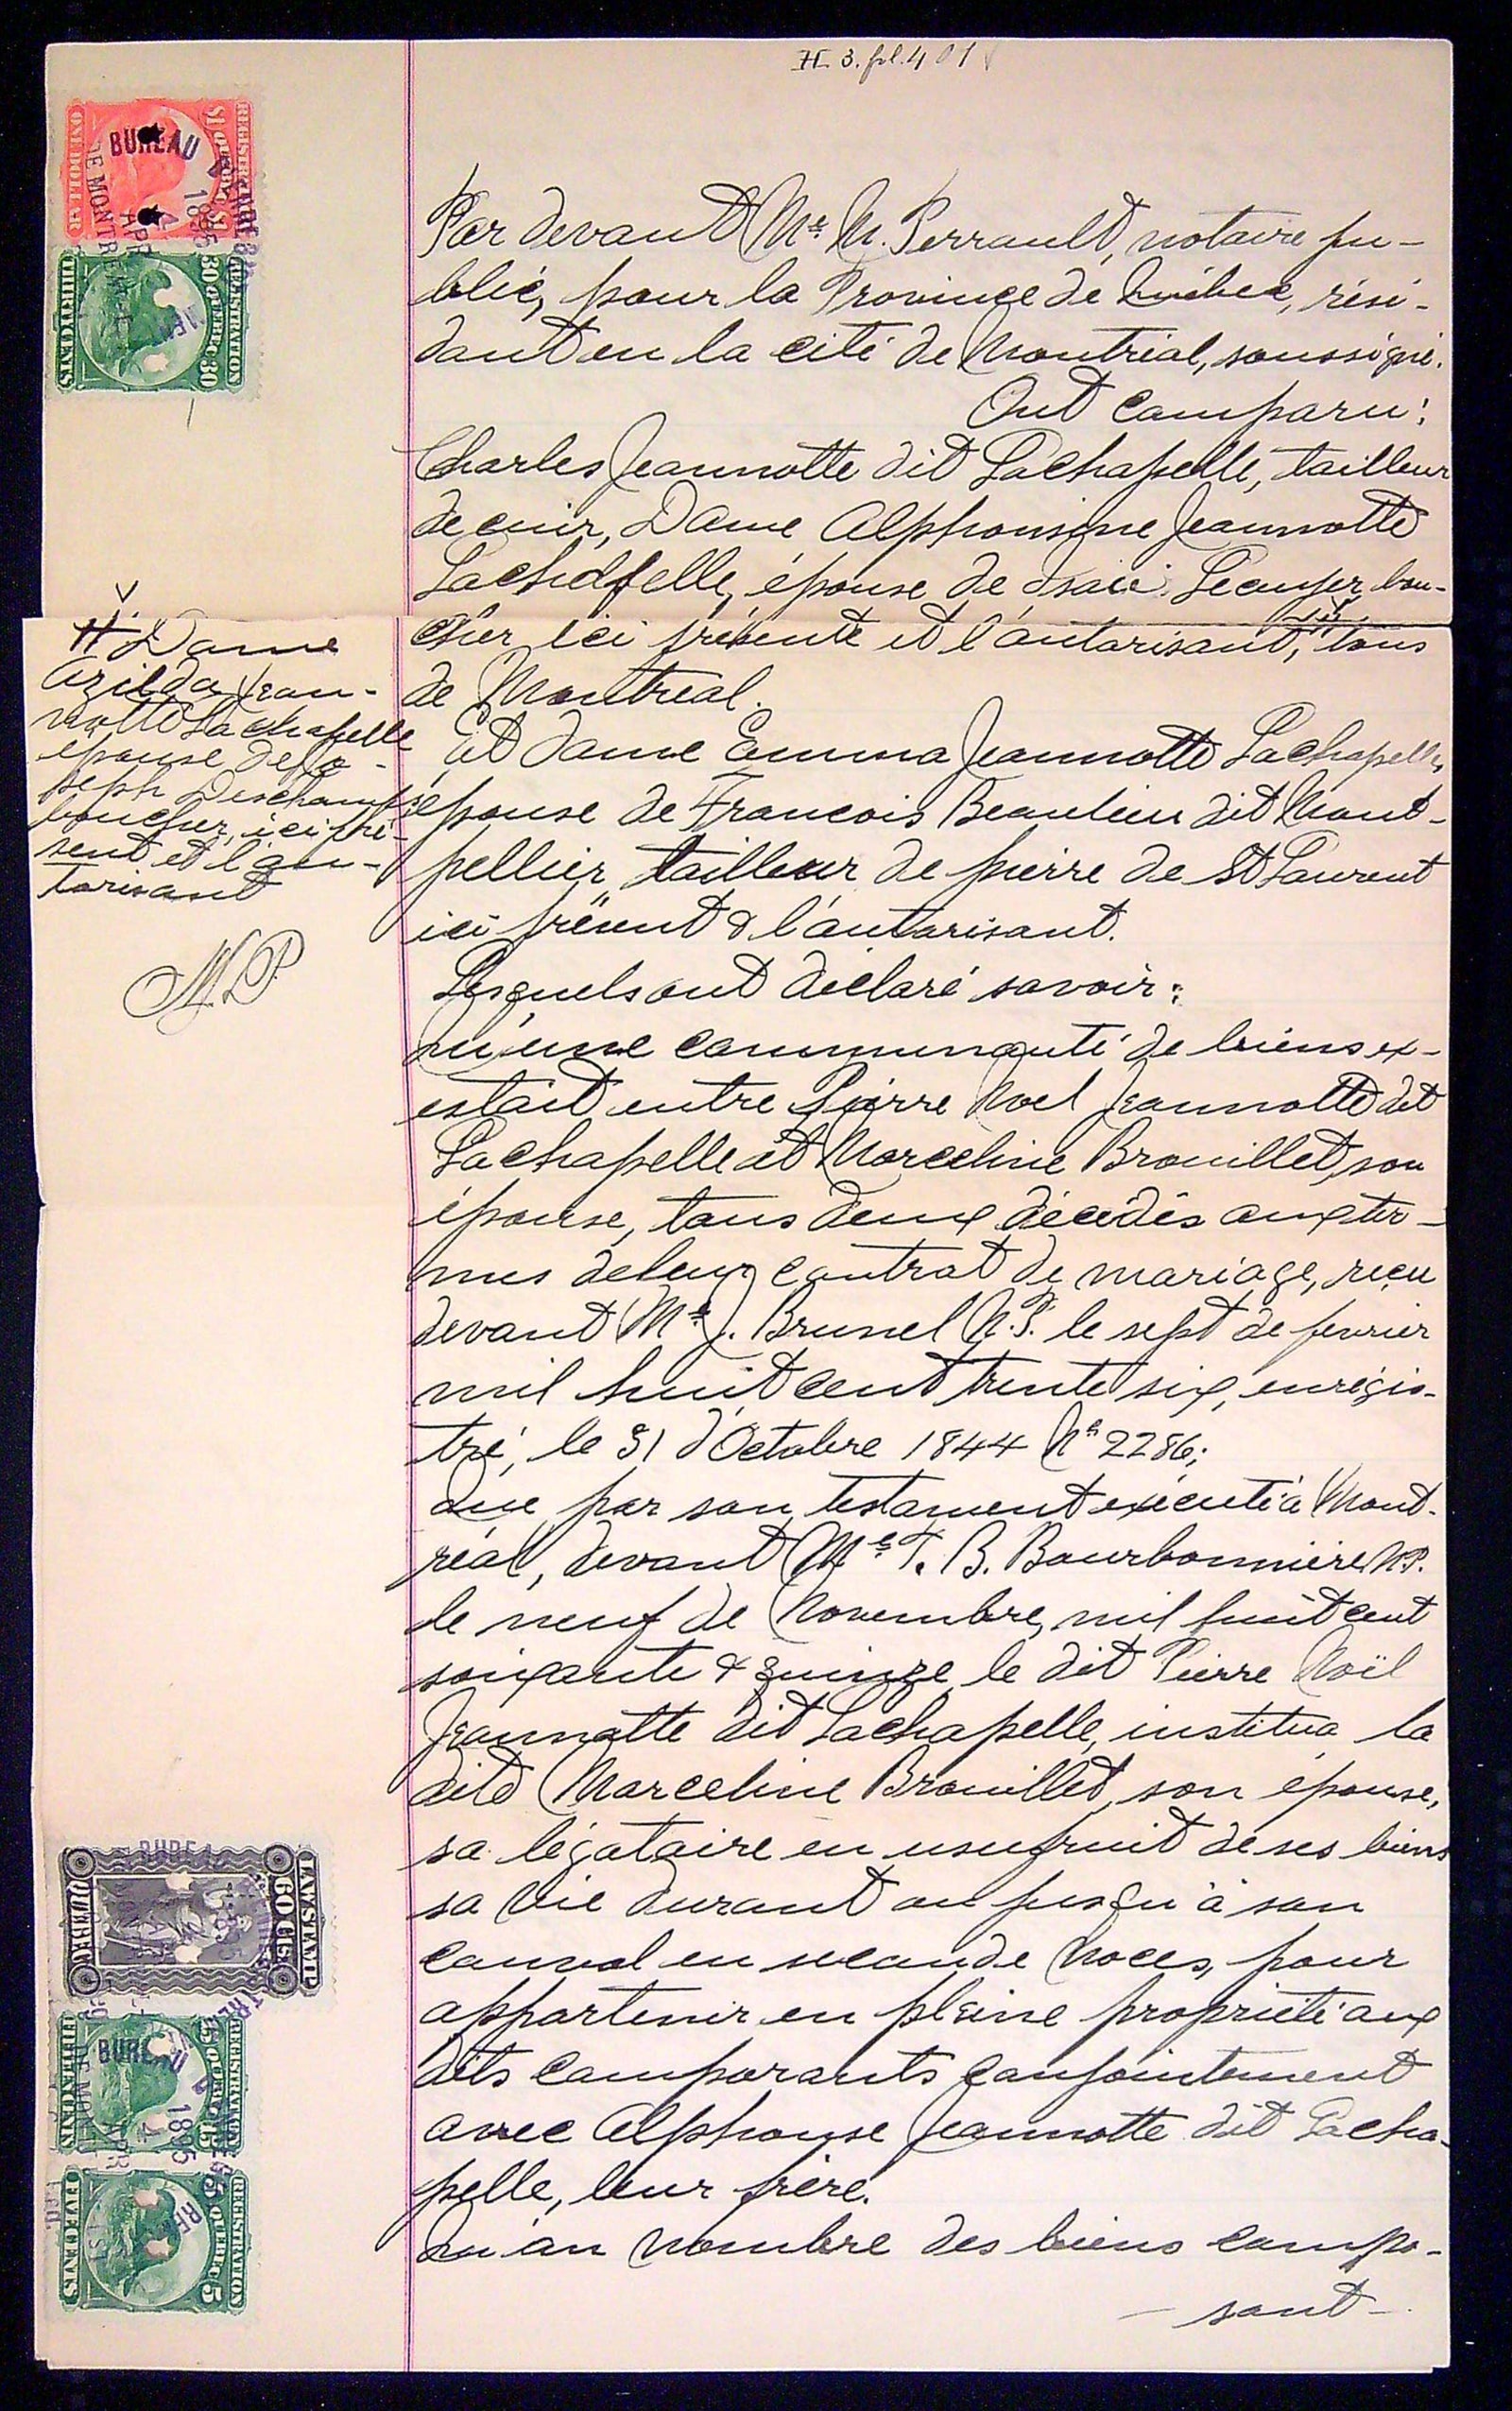 H 3. fol. 401
Par devant Mtre N. Perrault, notaire pu-
blic, pour la Province de Québec, rési-
dant en la cité de Montréal, soussigné.
Ont comparu:
Charles Jeannotte dit Lachapelle, tailleur
de cuir, Dame Alphonsine Jeannotte
Lachapelle, épouse de Isaïe Lecuyer, bou-
cher ici présente et l'autorisant, tous
de Montréal.
Et dame Emma Jeannotte Lachapelle,
épouse de Francois Beaulieu dit Mont-
pellier, tailleur de pierre de St Laurent
ici présent & l'autorisant.
Lesquels ont déclaré savoir:
Qu'une communauté de biens ex-
estait entre Pierre Noel Jeannotte dit
Lachapelle et Marceline Brouillet, son
épouse, tous deux décédés aux ter-
mes de leur contrat de mariage, reçu
devant Mtre J. Brunel N.P. le sept de fevrier
mil huit cent trente six, enrégis-
tré, le 31 d'Octobre 1844 No 2286;
Que par son testament exécuté à Mont-
réal, devant Me T. B. Bourbonnière N.P.
le neuf de Novembre, mil huit cent
soixante & quinze, le dit Pierre Noël
Jeannotte dit Lachapelle, institua la
dite Marceline Brouillet, son épouse,
sa légataire en usufruit de ses biens
sa vie durant ou jusqu'à son
convol en seconde Noces, pour
appartenir en pleine propriété aux
dits comparants conjointement
avec Alphonse Jeannotte dit Lacha-
pelle, leur frère.
Qu'au nombre des biens compo-
- sant -
Dame
Azilda Jean-
notte Lachapelle
épouse de Jo-
seph Deschamps
boucher, ici pré-
sent et l'au-
torisant
N.P.
REGISTRATION
$1 QUEBEC $1
ONE DOLLAR
BUREAU
DE MONTREAL
APR
1895
REGISTRATION
30 QUEBEC 30
THIRTY CENTS
LAW STAMP
60 CTS
QUEBEC
REGISTRATION
15 QUEBEC 15
FIFTEEN CENTS
BUREAU
1895
APR
REGISTRATION
5 QUEBEC 5
FIVE CENTS